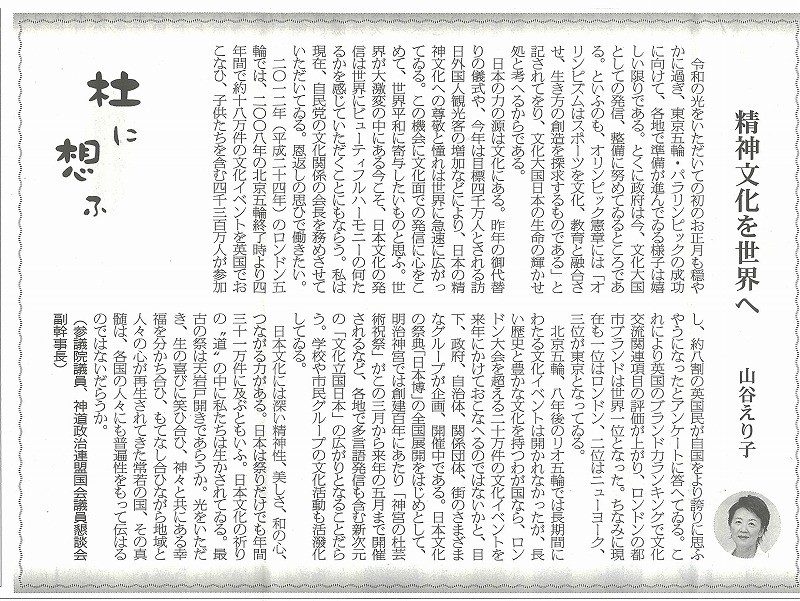 精神文化を世界へ
山谷えり子
杜に
想ふ
令和の光をいただいての初のお正月も穏や
かに過ぎ、東京五輪・パラリンピックの成功
に向けて、各地で準備が進んでゐる様子は嬉
しい限りである。とくに政府は今、文化大国
としての発信、整備に努めてゐるところであ
る。といふのも、オリンピック憲章には「オ
リンピズムはスポーツを文化、教育と融合さ
せ、生き方の創造を探求するものである」と
記されてをり、文化大国日本の生命の輝かせ
処と考へるからである。
日本の力の源は文化にある。昨年の御代替
りの儀式や、今年は目標四千万人とされる訪
日外国人観光客の増加などにより、日本の精
神文化への尊敬と憧れは世界に急速に広がっ
てゐる。この機会に文化面での発信に心をこ
めて、世界平和に寄与したいものと思ふ。世
界が大激変の中にある今こそ、日本文化の発
信は世界にビューティフルハーモニーの何た
るかを感じていただくことにもならう。私は
現在、自民党の文化関係の会長を務めさせて
いただいてゐる。恩返しの思ひで働きたい。
二〇一二年（平成二十四年）のロンドン五
輪では、二〇〇八年の北京五輪終了時より四
年間で約十八万件の文化イベントを英国でお
こなひ、子供たちを含む四千三百万人が参加
し、約八割の英国民が自国をより誇りに思ふ
やうになったとアンケートに答へてゐる。こ
れにより英国のブランド力ランキングで文化
交流関連項目の評価が上がり、ロンドンの都
市ブランドは世界一位となった。ちなみに現
在も一位はロンドン、二位はニューヨーク、
三位が東京となってゐる。
北京五輪、八年後のリオ五輪では長期間に
わたる文化イベントは開かれなかったが、長
い歴史と豊かな文化を持つわが国なら、ロン
ドン大会を超える二十万件の文化イベントを
来年にかけておこなへるのではないかと、目
下、政府、自治体、関係団体、街のさまざま
なグループが企画、開催中である。日本文化
の祭典「日本博」の全国展開をはじめとして、
明治神宮では創建百年にあたり「神宮の杜芸
術祝祭」がこの三月から来年の五月まで開催
されるなど、各地で多言語発信も含む新次元
の「文化立国日本」の広がりとなることだら
う。学校や市民グループの文化活動も活潑化
してゐる。
日本文化には深い精神性、美しさ、和の心、
つながる力がある。日本は祭りだけでも年間
三十一万件に及ぶともいふ。日本文化の祈り
の〝道〟の中に私たちは生かされてゐる。最
古の祭は天岩戸開きであらうか。光をいただ
き、生の喜びに笑ひ合ひ、神々と共にある幸
福を分かち合ひ、もてなし合ひながら地域と
人々の心が再生されてきた常若の国、その真
髄は、各国の人々にも普遍性をもって伝はる
のではないだらうか。
（参議院議員、神道政治連盟国会議員懇談会
副幹事長）